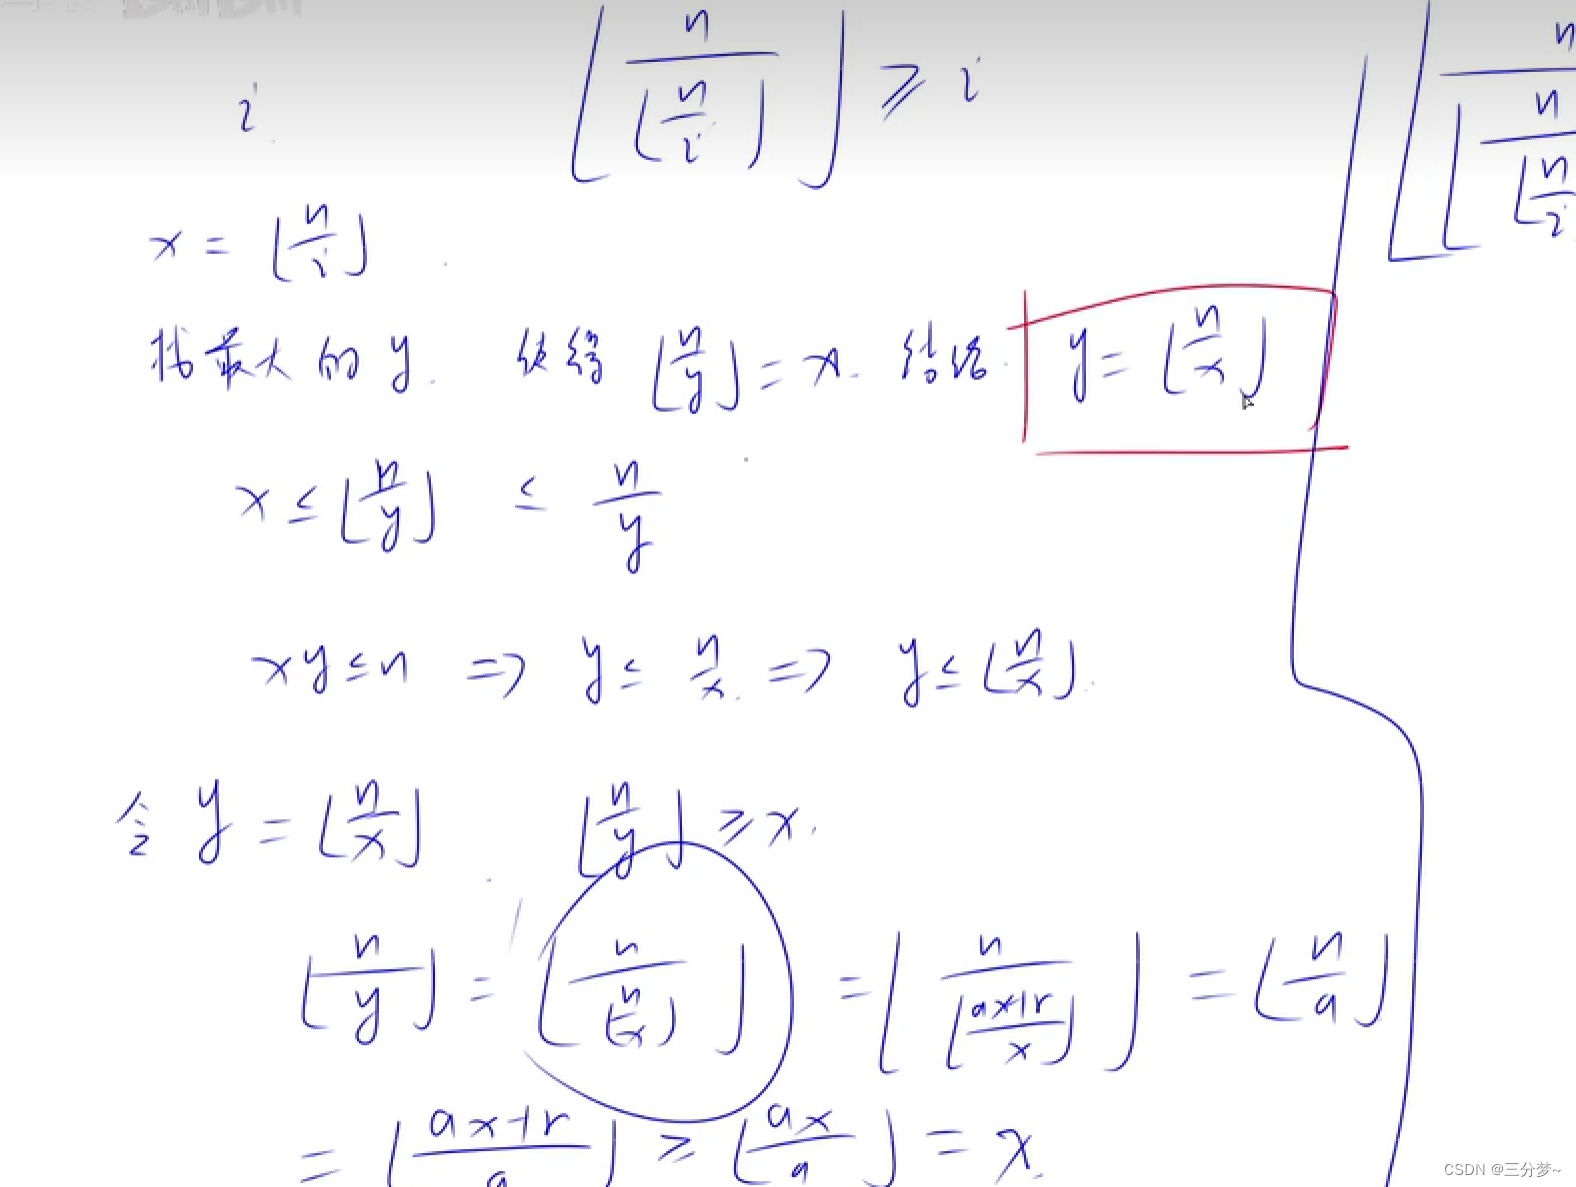 i ⌊n/⌊n/i⌋⌋ ≥ i
x = ⌊n/i⌋
找最大的 y. 使得 ⌊n/y⌋ = x. 结论. y = ⌊n/x⌋
x ≤ ⌊n/y⌋ ≤ n/y
xy ≤ n ⇒ y ≤ n/x. ⇒ y ≤ ⌊n/x⌋.
令 y = ⌊n/x⌋ ⌊n/y⌋ ≥ x.
⌊n/y⌋ = ⌊n/⌊n/x⌋⌋ = ⌊n/⌊(ax+r)/x⌋⌋ = ⌊n/a⌋
= ⌊(ax+r)/a⌋ ≥ ⌊ax/a⌋ = x.
⌊n/⌊n/⌊n/i⌋
CSDN @三分梦~